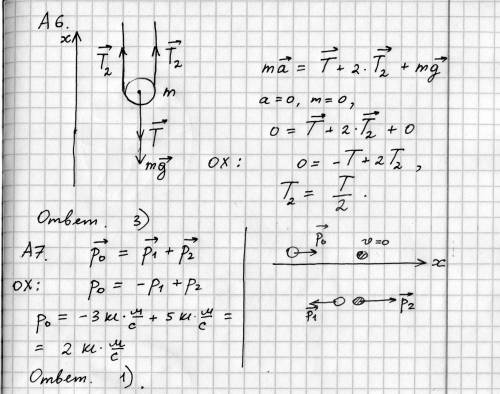 А6.
x
T⃗₂ T⃗₂
m
T⃗
mg⃗
ma⃗ = T⃗ + 2·T⃗₂ + mg⃗
a=0, m=0,
0 = T⃗ + 2·T⃗₂ + 0
OX: 0 = -T + 2T₂,
T₂ = T/2.
Ответ. 3)
А7. p⃗₀ = p⃗₁ + p⃗₂
OX: p₀ = -p₁ + p₂
p₀ = -3 кг·м/с + 5 кг·м/с =
= 2 кг·м/с
Ответ. 1).
p⃗₀ v=0
x
p⃗₁ p⃗₂